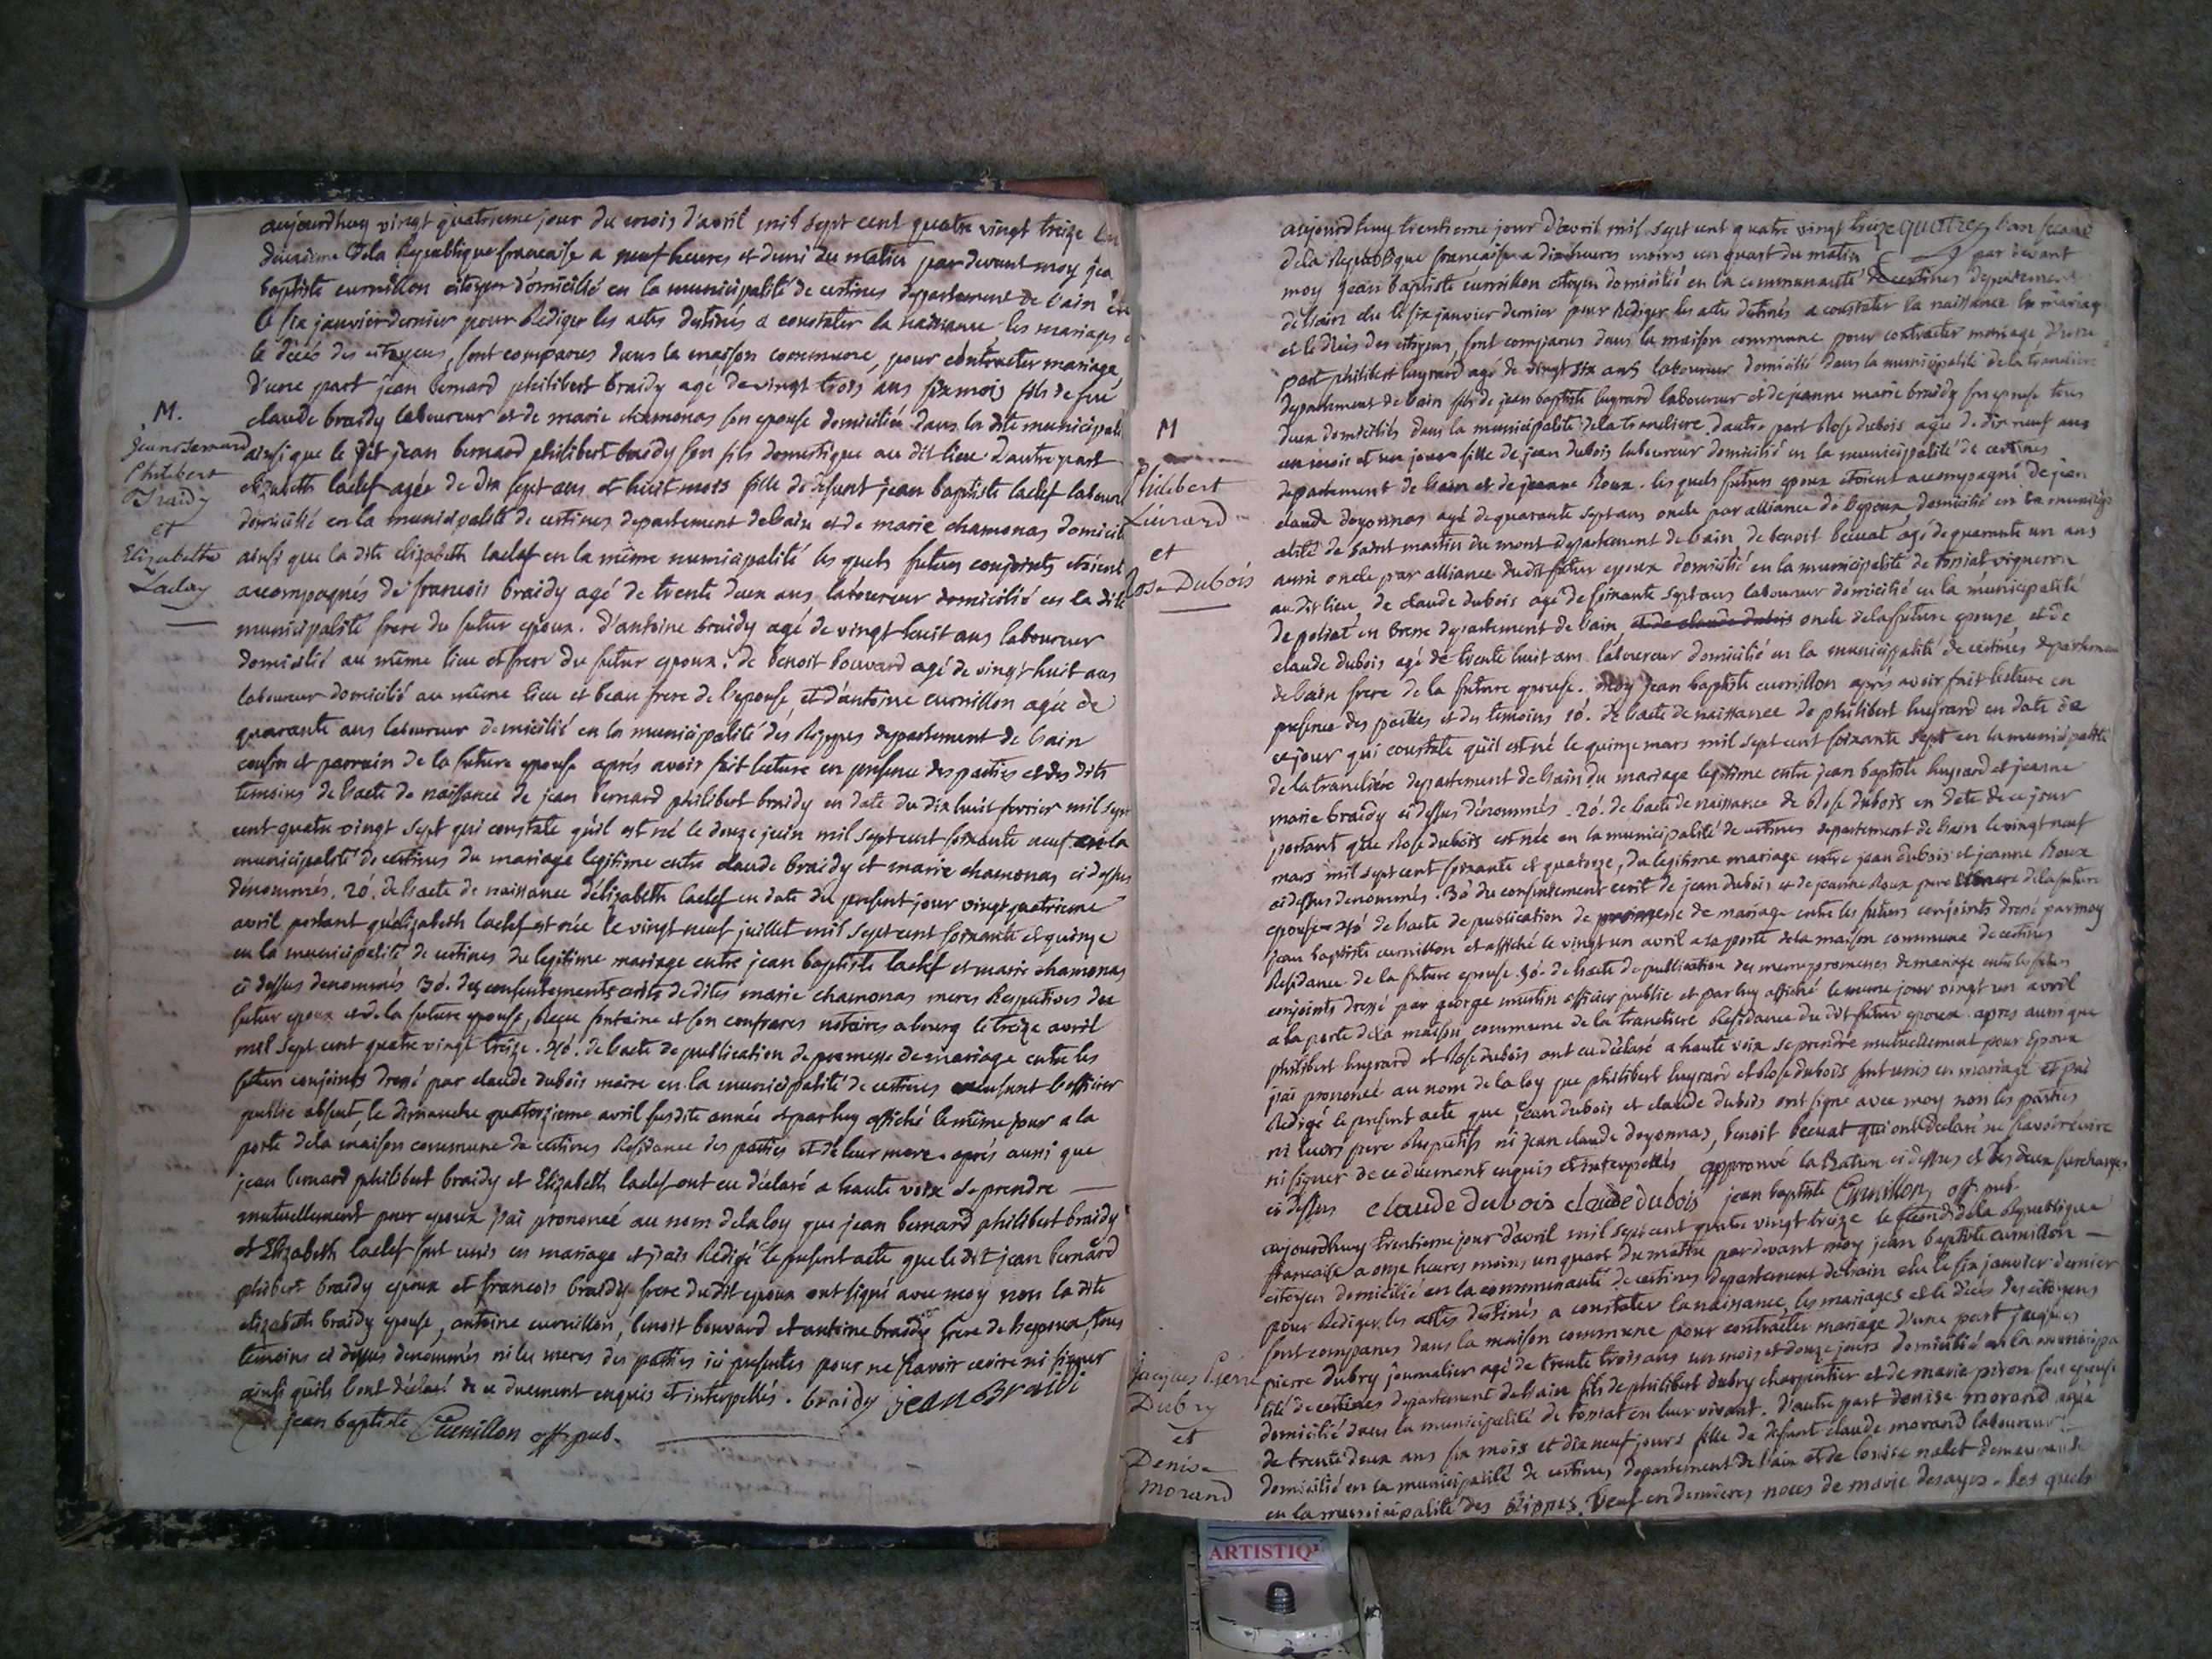 aujourdhuy vingt quatrieme jour du mois d'avril mil sept cent quatre vingt treize
deuxieme de la Republique francaise a neuf heures et demi du matin par devant moy jea
baptiste curnillon citoyen domicilié en la municipalité de certines departement de l'ain
le six janvier dernier pour Rediger les actes destinés a constater la naissance les mariages
le décès des citoyens, sont comparus dans la maison commune, pour contracter mariage
d'une part jean bernard philibert braidy agé de vingt trois ans six mois fils de feu
claude braidy laboureur et de marie chamonas son epouse domiciliée dans la dite municipali
ainsi que le dit jean bernard philibert braidy son fils domestique au dit lieu d'autre part
elizabeth laclef agée de dix sept ans et huit mois fille de defunt jean baptiste laclef labour
domicilié en la municipalité de certines departement de l'ain et de marie chamonas domicil
ainsi que la dite elizabeth laclef en la même municipalité les quels futurs conjoints étoient
accompagnés de francois braidy agé de trente deux ans laboureur domicilié en la dite
municipalité frere du futur epoux. d'antoine braidy agé de vingt huit ans laboureur
domicilié au même lieu et frere du futur epoux. de benoit bouvard agé de vingt huit ans
laboureur domicilié au même lieu et beau frere de l'epouse, et d'antoine curnillon agée de
quarante ans laboureur domicilié en la municipalité des Rippes departement de l'ain
cousin et parrain de la future epouse aprés avoir fait lecture en presence des parties et des dits
temoins de l'acte de naissance de jean bernard philibert braidy en date du dix huit fevrier mil sept
cent quatre vingt sept qui constate qu'il est né le douze juin mil sept cent soixante neuf en la
municipalité de certines du mariage legitime entre claude braidy et marie chamonas ci dessus
dénommés. 2o. de l'acte de naissance d'élizabeth laclef en date du present jour vingt quatrieme
avril portant qu'elizabeth laclef est née le vingt neuf juillet mil sept cent soixante et quinze
en la municipalité de certines du legitime mariage entre jean baptiste laclef et marie chamonas
ci dessus denommés 3o. des consentements ecrits de dites marie chamonas meres Respectives du
futur epoux et de la future epouse, Recu fontaine et son confrares notaires a bourg le treize avril
mil sept cent quatre vingt treize. 4o. de l'acte de publication de promesse de mariage entre les
futurs conjoints dressé par claude dubois maire en la municipalité de certines l'officier
public absent, le dimanche quatorzieme avril susdite année et par luy affiché le même jour a la
porte de la maison commune de certines Residance des parties et de leur mere. aprés aussi que
jean bernard philibert braidy et Elizabeth laclef ont eu déclaré a haute voix se prendre
mutuellement pour epoux j'ai prononcé au nom de la loy que jean bernard philibert braidy
et Elizabeth laclef sont unis en mariage et j'ais Redigé le present acte que le dit jean bernard
philibert braidy epoux et francois braidy frere du dit epoux ont signé avec moy non la dite
elizabeth braidy epouse, antoine curnillon, benoit bouvard et antoine braidy frere de l'epoux, tous
temoins ci dessus denommés ni les meres des parties ici presentes pour ne sçavoir ecrire ni signer
ainsi qu'ils l'ont déclaré de ce duement enquis et interpellés. braidy jean Braidi
jean baptiste Curnillon off. pub.
M.
Jean bernard
Philibert
Braidy
et
Elizabethe
Laclay
aujourdhuy trentieme jour d'avril mil sept cent quatre vingt treize l'an second
de la Republique francaise a dix heures moins un quart du matin par devant
moy jean baptiste curnillon citoyen domicilié en la communauté de certines departement
de l'ain elu le six janvier dernier pour Rediger les actes destinés a constater la naissance les mariag
et le décès des citoyens, sont comparus dans la maison commune pour contracter mariage d'une
part philibert luyrard agé de vingt six ans laboureur domicilié dans la municipalité de la tranclière
departement de l'ain fils de jean baptiste luyrard laboureur et de jeanne marie braidy son epouse tous
deux domiciliés dans la municipalité de la tranclière. d'autre part Rose dubois agée de dix neuf ans
un mois et un jour fille de jean dubois laboureur domicilié en la municipalité de certines
departement de l'ain et de jeanne Roux. les quels futurs epoux étoient accompagné de jean
claude doyonnas agé de quarante sept ans oncle par alliance de l'epoux, domicilié en la municip
alité de saint martin du mont departement de l'ain, de benoit becuat agé de quarante un ans
aussi oncle par alliance du dit futur epoux domicilié en la municipalité de tossiat vigneron
au dit lieu, de claude dubois agé de soixante sept ans laboureur domicilié en la municipalité
de poliat en bresse departement de l'ain et de claude dubois oncle de la future epouse, et de
claude dubois agé de trente huit ans laboureur domicilié en la municipalité de certines departemen
de l'ain frere de la future epouse. moy jean baptiste curnillon aprés avoir fait lecture en
presence des parties et des temoins 1o. de l'acte de naissance de philibert luyrard en date de
ce jour qui constate qu'il est né le quinze mars mil sept cent soixante sept en la municipalité
de la tranclière departement de l'ain du mariage legitime entre jean baptiste luyrard et jeanne
marie braidy ci dessus dénommés. 2o. de l'acte de naissance de Rose dubois en date de ce jour
portant que Rose dubois est née en la municipalité de certines departement de l'ain le vingt neuf
mars mil sept cent soixante et quatorze, du legitime mariage entre jean dubois et jeanne Roux
ci dessus denommés. 3o du consentement ecrit de jean dubois et de jeanne Roux pere et mere de la future
epouse. 4o de l'acte de publication de promesse de mariage entre les futurs conjoints dressé par moy
jean baptiste curnillon et affiché le vingt un avril a la porte de la maison commune de certines
Residance de la future epouse. 5o. de l'acte de publication des memes promesses de mariage entre les futurs
conjoints dressé par george mustin officier public et par luy affiché le meme jour vingt un avril
a la porte de la maison commune de la tranclière Residance du dit futur epoux apres aussi que
philibert luyrard et Rose dubois ont eu déclaré a haute voix se prendre mutuellement pour Epoux
j'ai prononcé au nom de la loy que philibert luyrard et Rose dubois sont unis en mariage et j'ai
Redigé le present acte que jean dubois et claude dubois ont signé avec moy non les parties
ni leurs pere Respectifs ni jean claude doyonnas, benoit becuat qui ont déclaré ne sçavoir écrire
ni signer de ce duement enquis et interpellés approuvé la Rature ci dessus et les deux surcharges
ci dessus claude dubois claude dubois jean baptiste Curnillon off. pub.
M
Philibert
Liérard
et
Rose Dubois
aujourdhuy trentieme jour d'avril mil sept cent quatre vingt treize le second de la Republique
francaise a onze heures moins un quart du matin par devant moy jean baptiste curnillon
citoyen domicilié en la communauté de certines departement de l'ain elu le six janvier dernier
pour Rediger les actes destinés a constater la naissance, les mariages et le décès des citoyens
sont comparus dans la maison commune pour contracter mariage d'une part jacques
pierre dubry journalier agé de trente trois ans un mois et douze jours domicilié en la municipa
lité de certines departement de l'ain fils de philibert dubry charpentier et de marie piron son epouse
domicilié dans la municipalité de tossiat en leur vivant. d'autre part denise morand agée
de trente deux ans six mois et dix neuf jours fille de defunt claude morand laboureur
domicilié en la municipalité de certines departement de l'ain et de louise nalet demeurante
en la municipalité des Rippes. Veuf en dernieres noces de marie desayes. les quels
Jacques Pierre
Dubry
et
Denise
Morand
ARTISTIQ